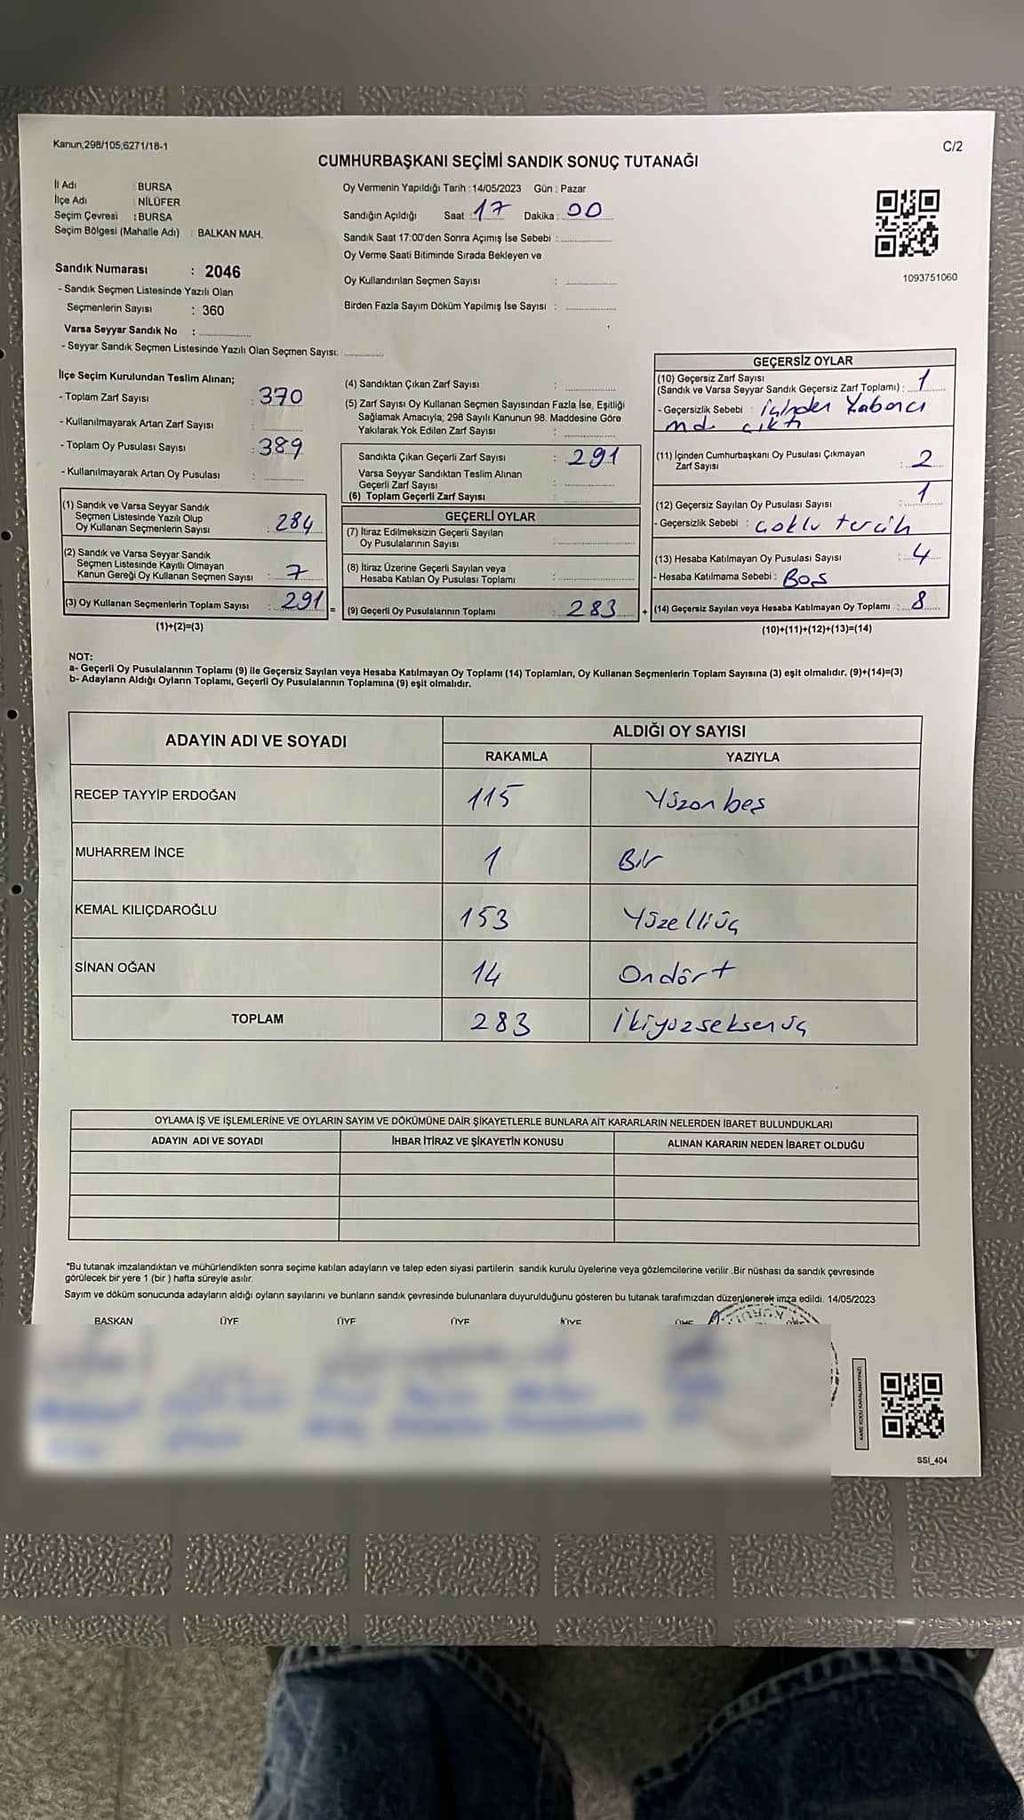 Kanun;298/105;6271/18-1
C/2
CUMHURBAŞKANI SEÇİMİ SANDIK SONUÇ TUTANAĞI
İl Adı : BURSA
İlçe Adı : NİLÜFER
Seçim Çevresi : BURSA
Seçim Bölgesi (Mahalle Adı) : BALKAN MAH.
Sandık Numarası : 2046
- Sandık Seçmen Listesinde Yazılı Olan
Seçmenlerin Sayısı : 360
Varsa Seyyar Sandık No :
- Seyyar Sandık Seçmen Listesinde Yazılı Olan Seçmen Sayısı:
Oy Vermenin Yapıldığı Tarih :14/05/2023 Gün : Pazar
Sandığın Açıldığı Saat : 17 Dakika : 00
Sandık Saat 17:00'den Sonra Açımış İse Sebebi :
Oy Verme Saati Bitiminde Sırada Bekleyen ve
Oy Kullandırılan Seçmen Sayısı :
Birden Fazla Sayım Döküm Yapılmış İse Sayısı :
1093751060
İlçe Seçim Kurulundan Teslim Alınan;
- Toplam Zarf Sayısı : 370
- Kullanılmayarak Artan Zarf Sayısı :
- Toplam Oy Pusulası Sayısı : 389
- Kullanılmayarak Artan Oy Pusulası :
(1) Sandık ve Varsa Seyyar Sandık
Seçmen Listesinde Yazılı Olup
Oy Kullanan Seçmenlerin Sayısı : 284
(2) Sandık ve Varsa Seyyar Sandık
Seçmen Listesinde Kayıtlı Olmayan
Kanun Gereği Oy Kullanan Seçmen Sayısı : 7
(3) Oy Kullanan Seçmenlerin Toplam Sayısı : 291 =
(1)+(2)=(3)
(4) Sandıktan Çıkan Zarf Sayısı :
(5) Zarf Sayısı Oy Kullanan Seçmen Sayısından Fazla İse, Eşitliği
Sağlamak Amacıyla; 298 Sayılı Kanunun 98. Maddesine Göre
Yakılarak Yok Edilen Zarf Sayısı :
Sandıkta Çıkan Geçerli Zarf Sayısı : 291
Varsa Seyyar Sandıktan Teslim Alınan
Geçerli Zarf Sayısı :
(6) Toplam Geçerli Zarf Sayısı :
GEÇERLİ OYLAR
(7) İtiraz Edilmeksizin Geçerli Sayılan
Oy Pusulalarının Sayısı :
(8) İtiraz Üzerine Geçerli Sayılan veya
Hesaba Katılan Oy Pusulası Toplamı :
(9) Geçerli Oy Pusulalarının Toplamı : 283 +
GEÇERSİZ OYLAR
(10) Geçersiz Zarf Sayısı
(Sandık ve Varsa Seyyar Sandık Geçersiz Zarf Toplamı) : 1
- Geçersizlik Sebebi : içinden Yabancı
md. çıktı
(11) İçinden Cumhurbaşkanı Oy Pusulası Çıkmayan
Zarf Sayısı : 2
(12) Geçersiz Sayılan Oy Pusulası Sayısı : 1
- Geçersizlik Sebebi : çoklu tercih
(13) Hesaba Katılmayan Oy Pusulası Sayısı : 4
- Hesaba Katılmama Sebebi : Boş
(14) Geçersiz Sayılan veya Hesaba Katılmayan Oy Toplamı : 8
(10)+(11)+(12)+(13)=(14)
NOT:
a- Geçerli Oy Pusulalarının Toplamı (9) ile Geçersiz Sayılan veya Hesaba Katılmayan Oy Toplamı (14) Toplamları, Oy Kullanan Seçmenlerin Toplam Sayısına (3) eşit olmalıdır. (9)+(14)=(3)
b- Adayların Aldığı Oyların Toplamı, Geçerli Oy Pusulalarının Toplamına (9) eşit olmalıdır.
ADAYIN ADI VE SOYADI ALDIĞI OY SAYISI
RAKAMLA YAZIYLA
RECEP TAYYİP ERDOĞAN 115 Yüzonbeş
MUHARREM İNCE 1 Bir
KEMAL KILIÇDAROĞLU 153 Yüzelliüç
SİNAN OĞAN 14 Ondört
TOPLAM 283 İkiyüzseksenüç
OYLAMA İŞ VE İŞLEMLERİNE VE OYLARIN SAYIM VE DÖKÜMÜNE DAİR ŞİKAYETLERLE BUNLARA AİT KARARLARIN NELERDEN İBARET BULUNDUKLARI
ADAYIN ADI VE SOYADI İHBAR İTİRAZ VE ŞİKAYETİN KONUSU ALINAN KARARIN NEDEN İBARET OLDUĞU
*Bu tutanak imzalandıktan ve mühürlendikten sonra seçime katılan adayların ve talep eden siyasi partilerin sandık kurulu üyelerine veya gözlemcilerine verilir .Bir nüshası da sandık çevresinde
görülecek bir yere 1 (bir ) hafta süreyle asılır.
Sayım ve döküm sonucunda adayların aldığı oyların sayılarını ve bunların sandık çevresinde bulunanlara duyurulduğunu gösteren bu tutanak tarafımızdan düzenlenerek imza edildi. 14/05/2023
BAŞKAN ÜYE ÜYE ÜYE ÜYE
SSI_404